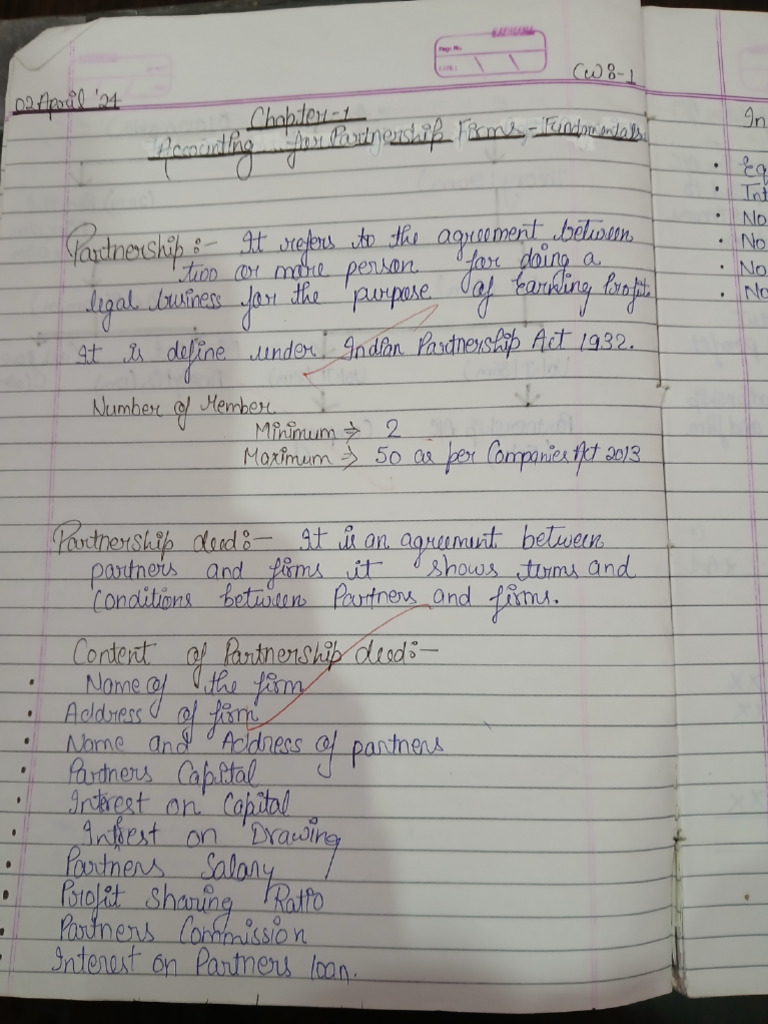 SAFHAMA
Page No.
DATE:
CW8-1
02 April '24
Chapter-1
Accounting for Partnership Firms - Fundamentals
Partnership :- It refers to the agreement between
two or more person for doing a
legal business for the purpose of Earning Profit.
It is define under Indian Partnership Act 1932.
Number of Member
Minimum ⇒ 2
Maximum ⇒ 50 as per Companies Act 2013
Partnership deed:- It is an agreement between
partners and firms it shows terms and
Conditions between Partners and firms.
Content of Partnership deed:-
• Name of the firm
• Address of firm
• Name and Address of partners
• Partners Capital
• Interest on Capital
• Interest on Drawing
• Partners Salary
• Profit Sharing Ratio
• Partners Commission
• Interest on Partners loan.
In
• Eq
• Int
• No
• No
• No
• No